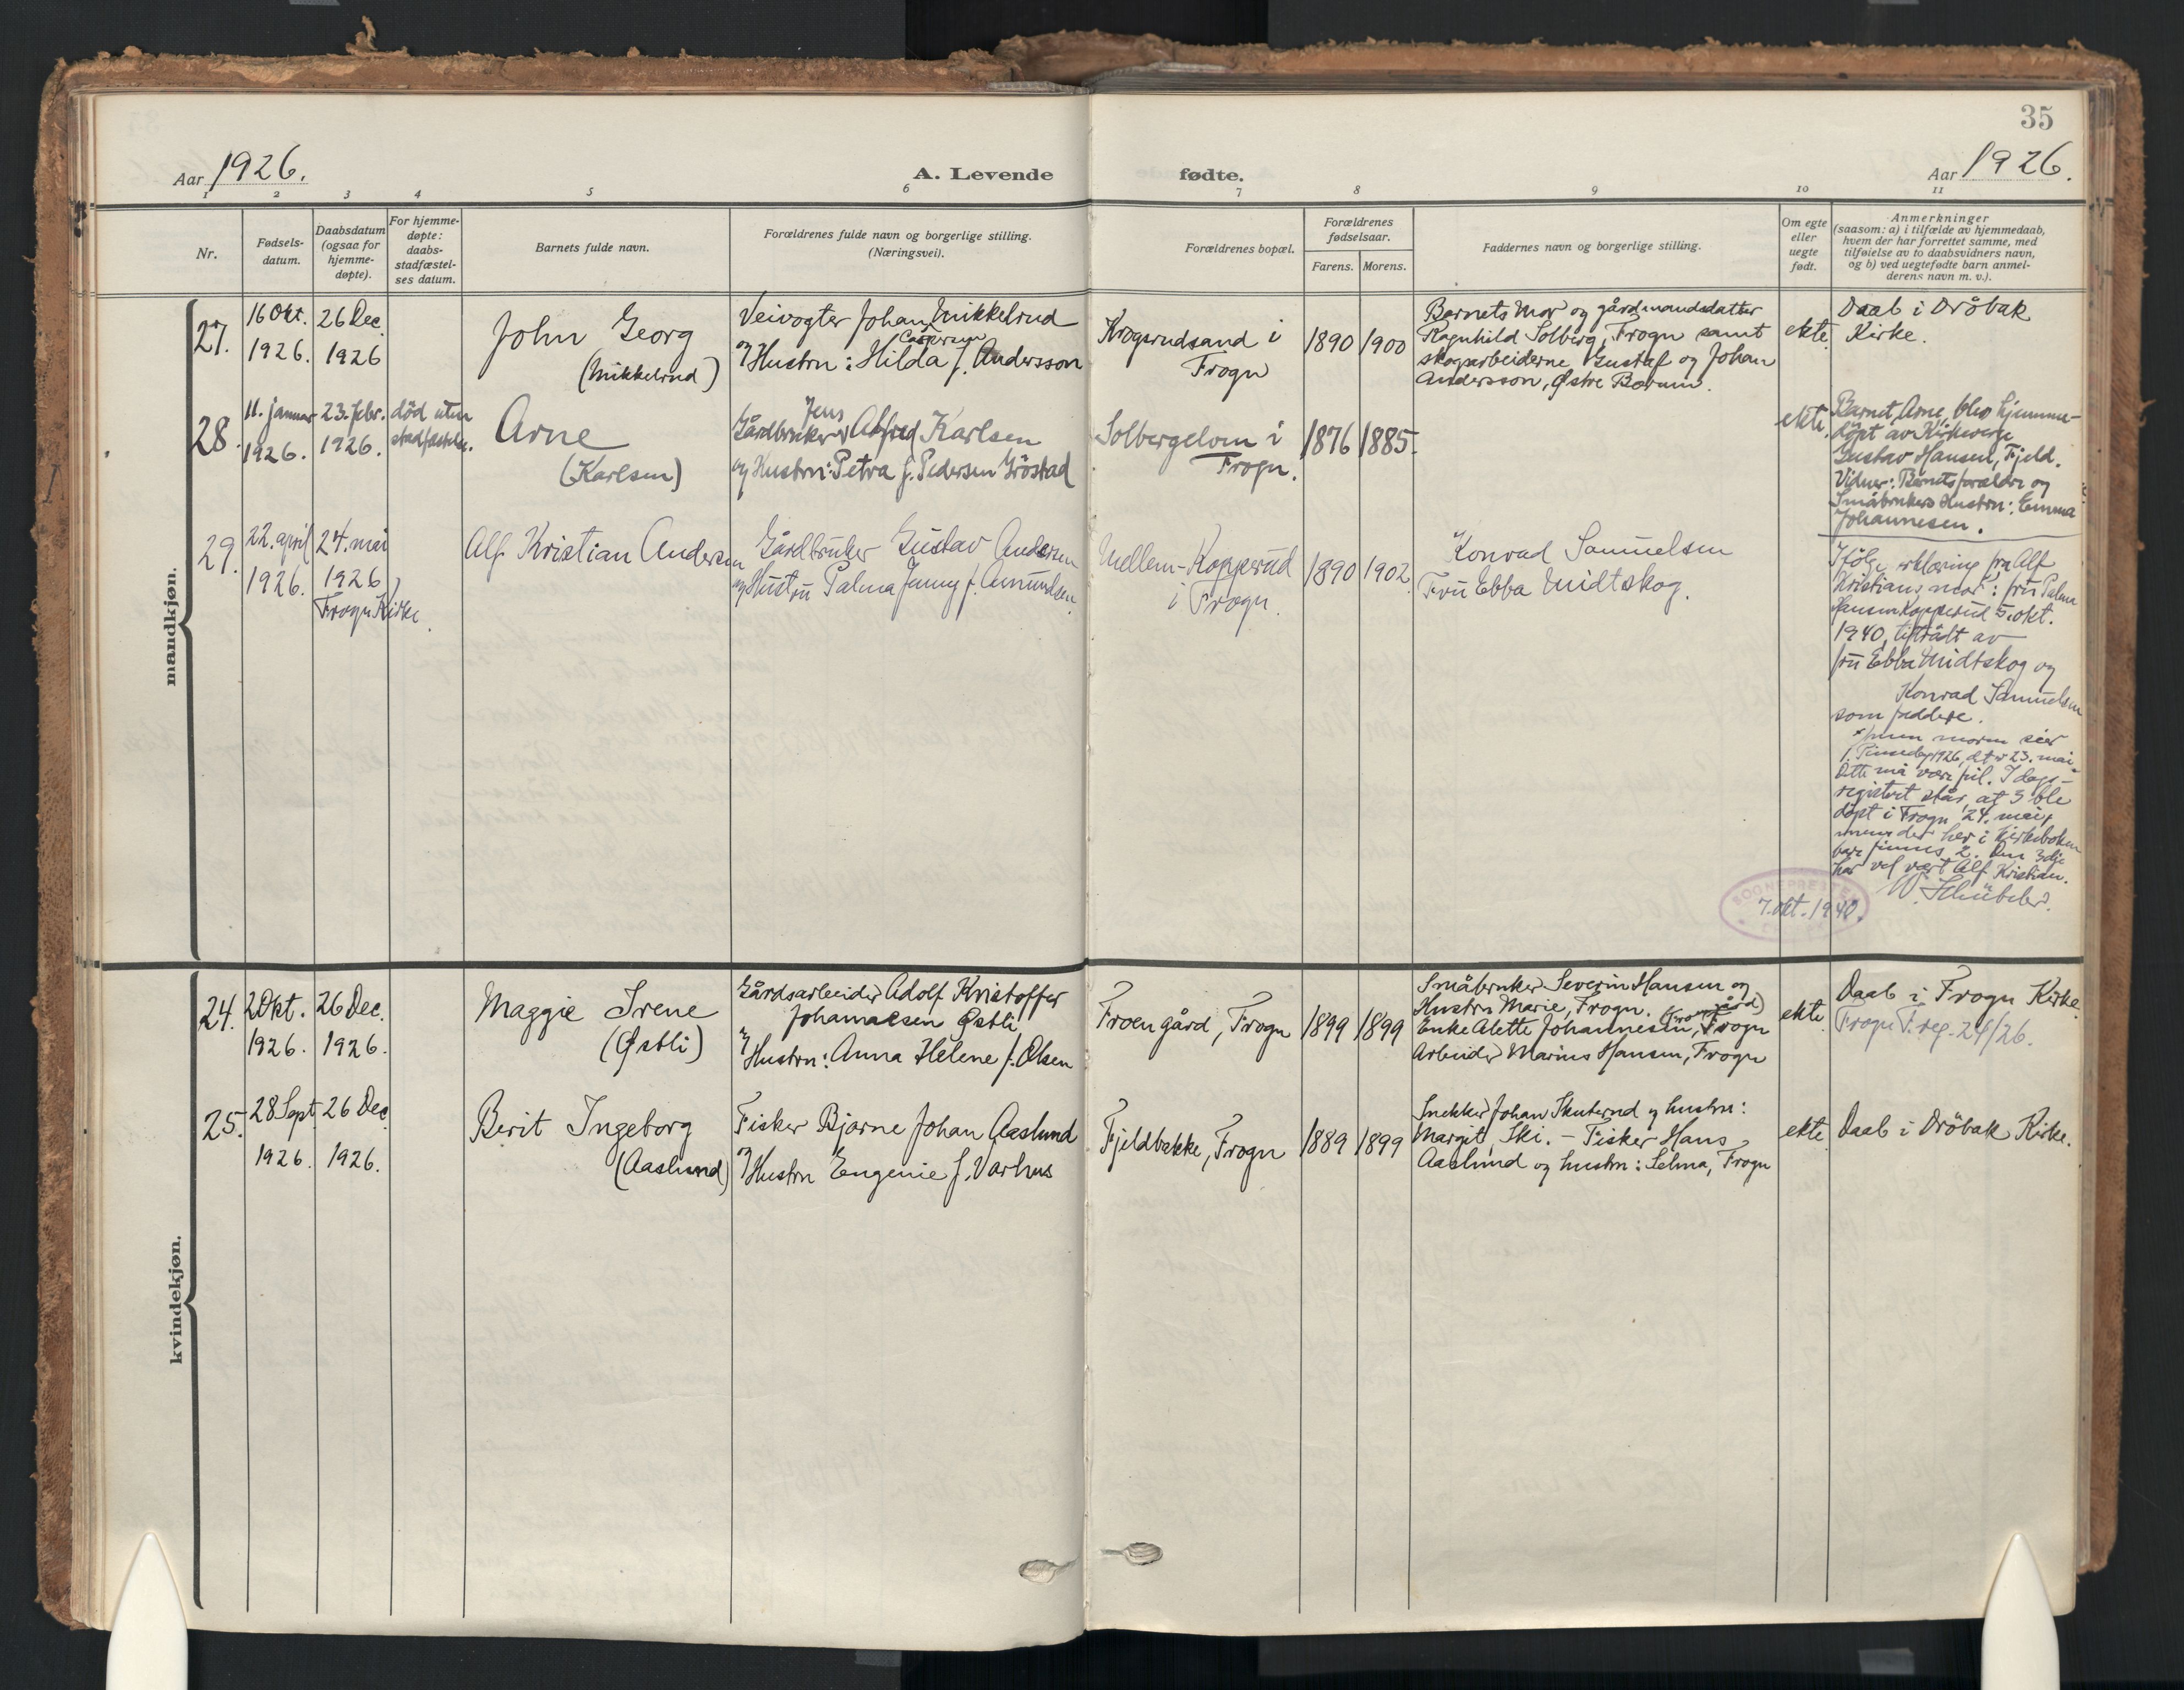 35
Aar 1926.
A. Levende
fødte.
Aar 1926.
1 2 3 4 5 6 7 8 9 10 11
Nr.
Fødsels-
datum.
Daabsdatum
(ogsaa for
hjemme-
døpte).
For hjemme-
døpte:
daabs-
stadfæstel-
ses datum.
Barnets fulde navn.
Forældrenes fulde navn og borgerlige stilling.
(Næringsvei).
Forældrenes bopæl.
Forældrenes
fødselsaar.
Farens. Morens.
Faddernes navn og borgerlige stilling.
Om egte
eller
uegte
født.
Anmerkninger
(saasom: a) i tilfælde av hjemmedaab,
hvem der har forrettet samme, med
tilføielse av to daabsvidners navn,
og b) ved uegtefødte barn anmel-
derens navn m. v.).
mandkjøn.
27.
16 Okt.
1926.
26 Dec.
1926
John Georg
(Mikkelrud)
Veivogter Johan Mikkelrud
og Hustru: Hilda f. Andersson
Krogsrudsand i
Frogn
1890 1900
Barnets Mor og gårdmandsdatter
Ragnhild Solberg, Frogn samt
skogsarbeiderne Gustaf og Johan
Andersson, Østre Bærum.
ekte.
Daab i Dröbak
Kirke.
28.
11. januar
1926.
23. febr.
1926.
död uten
stadfæstelse.
Arne
(Karlsen)
Jens
Gårdbruker Alfred Karlsen
og Hustru: Petra f. Pedersen Gröstad
Solbergelom i
Frogn.
1876 1885.
ekte.
Barnet, Arne, blev hjemme-
döpt av Kirkeverge
Gustav Hansen, Fjeld.
Vidner: Barnets forældre og
Småbrukers Hustru: Emma
Johannesen.
29.
22. april
1926.
24. mai
1926
Frogn Kirke.
Alf Kristian Andersen
Gårdbruker Gustav Andersen
og Hustru Palma Jenny f. Amundsen.
Mellem-Kopperud
i Frogn.
1890 1902
Konrad Samuelsen
Fru Ebba Midtskog.
Ifölge erklæring fra Alf
Kristians mor: fru Palma
Hansen Kopperud 5. okt.
1940, tiltrådt av
fru Ebba Midtskog og
Konrad Samuelsen
som faddere.
men moren sier
1. Pinsedag 1926, det er 23. mai.
Dette må være feil. I dags-
registret står, at 3 ble
döpt i Frogn 24. mai,
mens der her i kirkeboken
bare finnes 2. Den 3dje
har vel vært Alf Kristian.
W. Schübeler.
SOGNEPRESTEN
7. okt. 1940.
kvindekjøn.
24.
2 Okt.
1926.
26 Dec.
1926.
Maggie Irene
(Østli)
Gårdsarbeider Adolf Kristoffer
Johannesen Østli
og Hustru: Anna Helene f. Olsen
Froen gård, Frogn
1899 1899
Småbruker Severin Hansen og
Hustru Marie, Frogn.
Enke Alette Johannesen, Frogn
Arbeider Marius Hansen, Frogn
ekte
Daab i Frogn Kirke.
Frogn F. reg. 24/26.
25.
28 Sept.
1926.
26 Dec.
1926.
Berit Ingeborg
(Aaslund)
Fisker Bjarne Johan Aaslund
og Hustru Eugenie f. Varhus
Fjeldbakke, Frogn
1889 1899
Snekker Johan Skuterud og hustru:
Margit, Ski. – Fisker Hans
Aaslund og hustru: Selma, Frogn
ekte
Daab i Dröbak Kirke.